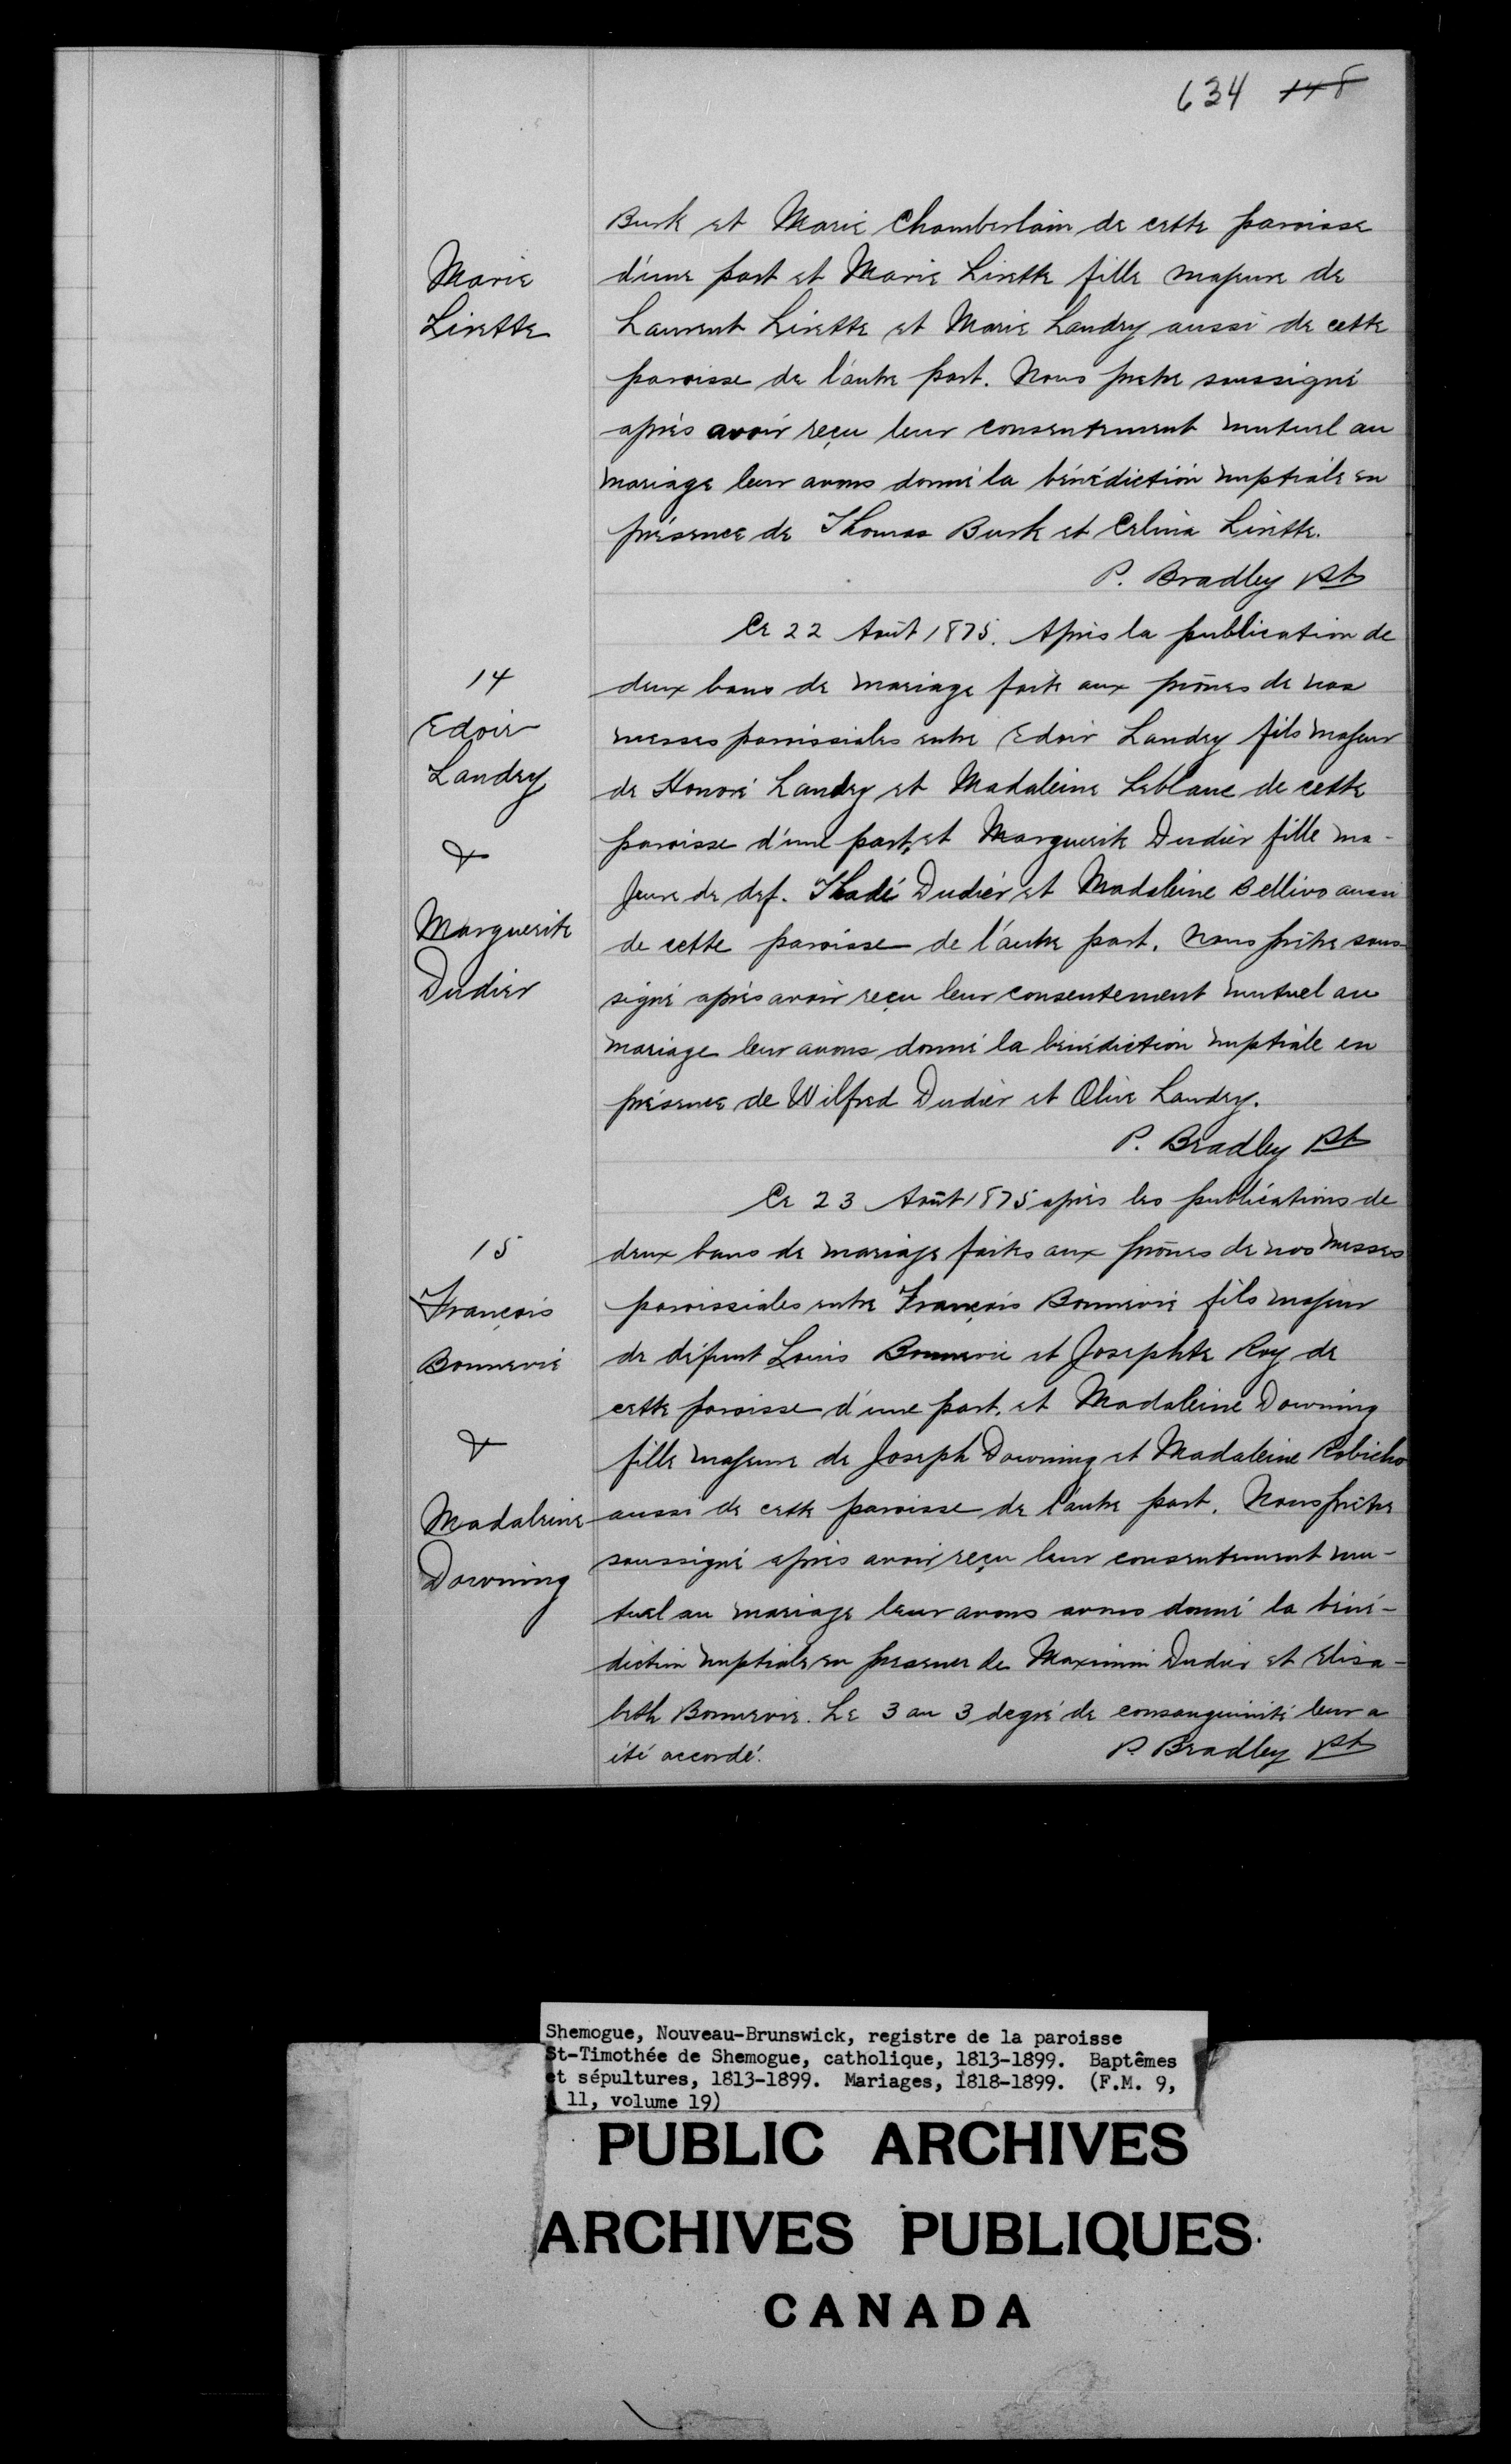 634 148
Burk et Marie Chamberlain de cette paroisse
Marie
d'une part et Marie Lirette fille majeure de
Lirette
Laurent Lirette et Marie Landry aussi de cette
paroisse de l'autre part. Nous pretre soussigné
après avoir reçu leur consentement mutuel au
mariage leur avons donné la bénédiction nuptiale en
présence de Thomas Burk et Celina Lirette.
P. Bradley Pt
Ce 22 Août 1875. Après la publication de
14
deux bans de mariage faite aux prônes de nos
Edoir
messes paroissiales entre Edoir Landry fils majeur
Landry
de Honoré Landry et Madaleine Leblanc de cette
&
paroisse d'une part, et Marguerite Dudier fille ma-
jeure de def. Thadé Dudier et Madaleine Bellivo aussi
Marguerite
de cette paroisse de l'autre part. Nous prêtre sous-
Dudier
signé après avoir reçu leur consentement mutuel au
mariage leur avons donné la bénédiction nuptiale en
présence de Wilfred Dudier et Olive Landry.
P. Bradley Pt
Ce 23 Août 1875 après les publications de
15
deux bans de mariage faites aux prônes de nos messes
François
paroissiales entre François Bonnevie fils majeur
Bonnevie
de défunt Louis Bonnevie et Josephte Roy de
cette paroisse d'une part, et Madaleine Downing
&
fille majeure de Joseph Downing et Madaleine Robicho
Madaleine
aussi de cette paroisse de l'autre part. Nous prêtre
Downing
soussigné après avoir reçu leur consentement mu-
tuel au mariage leur avons avons donné la béné-
diction nuptiale en presence de Maximin Dudier et Elisa-
beth Bonnevie. Le 3 au 3 degré de consanguinité leur a
été accordé. P. Bradley Pt
Shemogue, Nouveau-Brunswick, registre de la paroisse
St-Timothée de Shemogue, catholique, 1813-1899. Baptêmes
et sépultures, 1813-1899. Mariages, 1818-1899. (F.M. 9,
11, volume 19)
PUBLIC ARCHIVES
ARCHIVES PUBLIQUES
CANADA